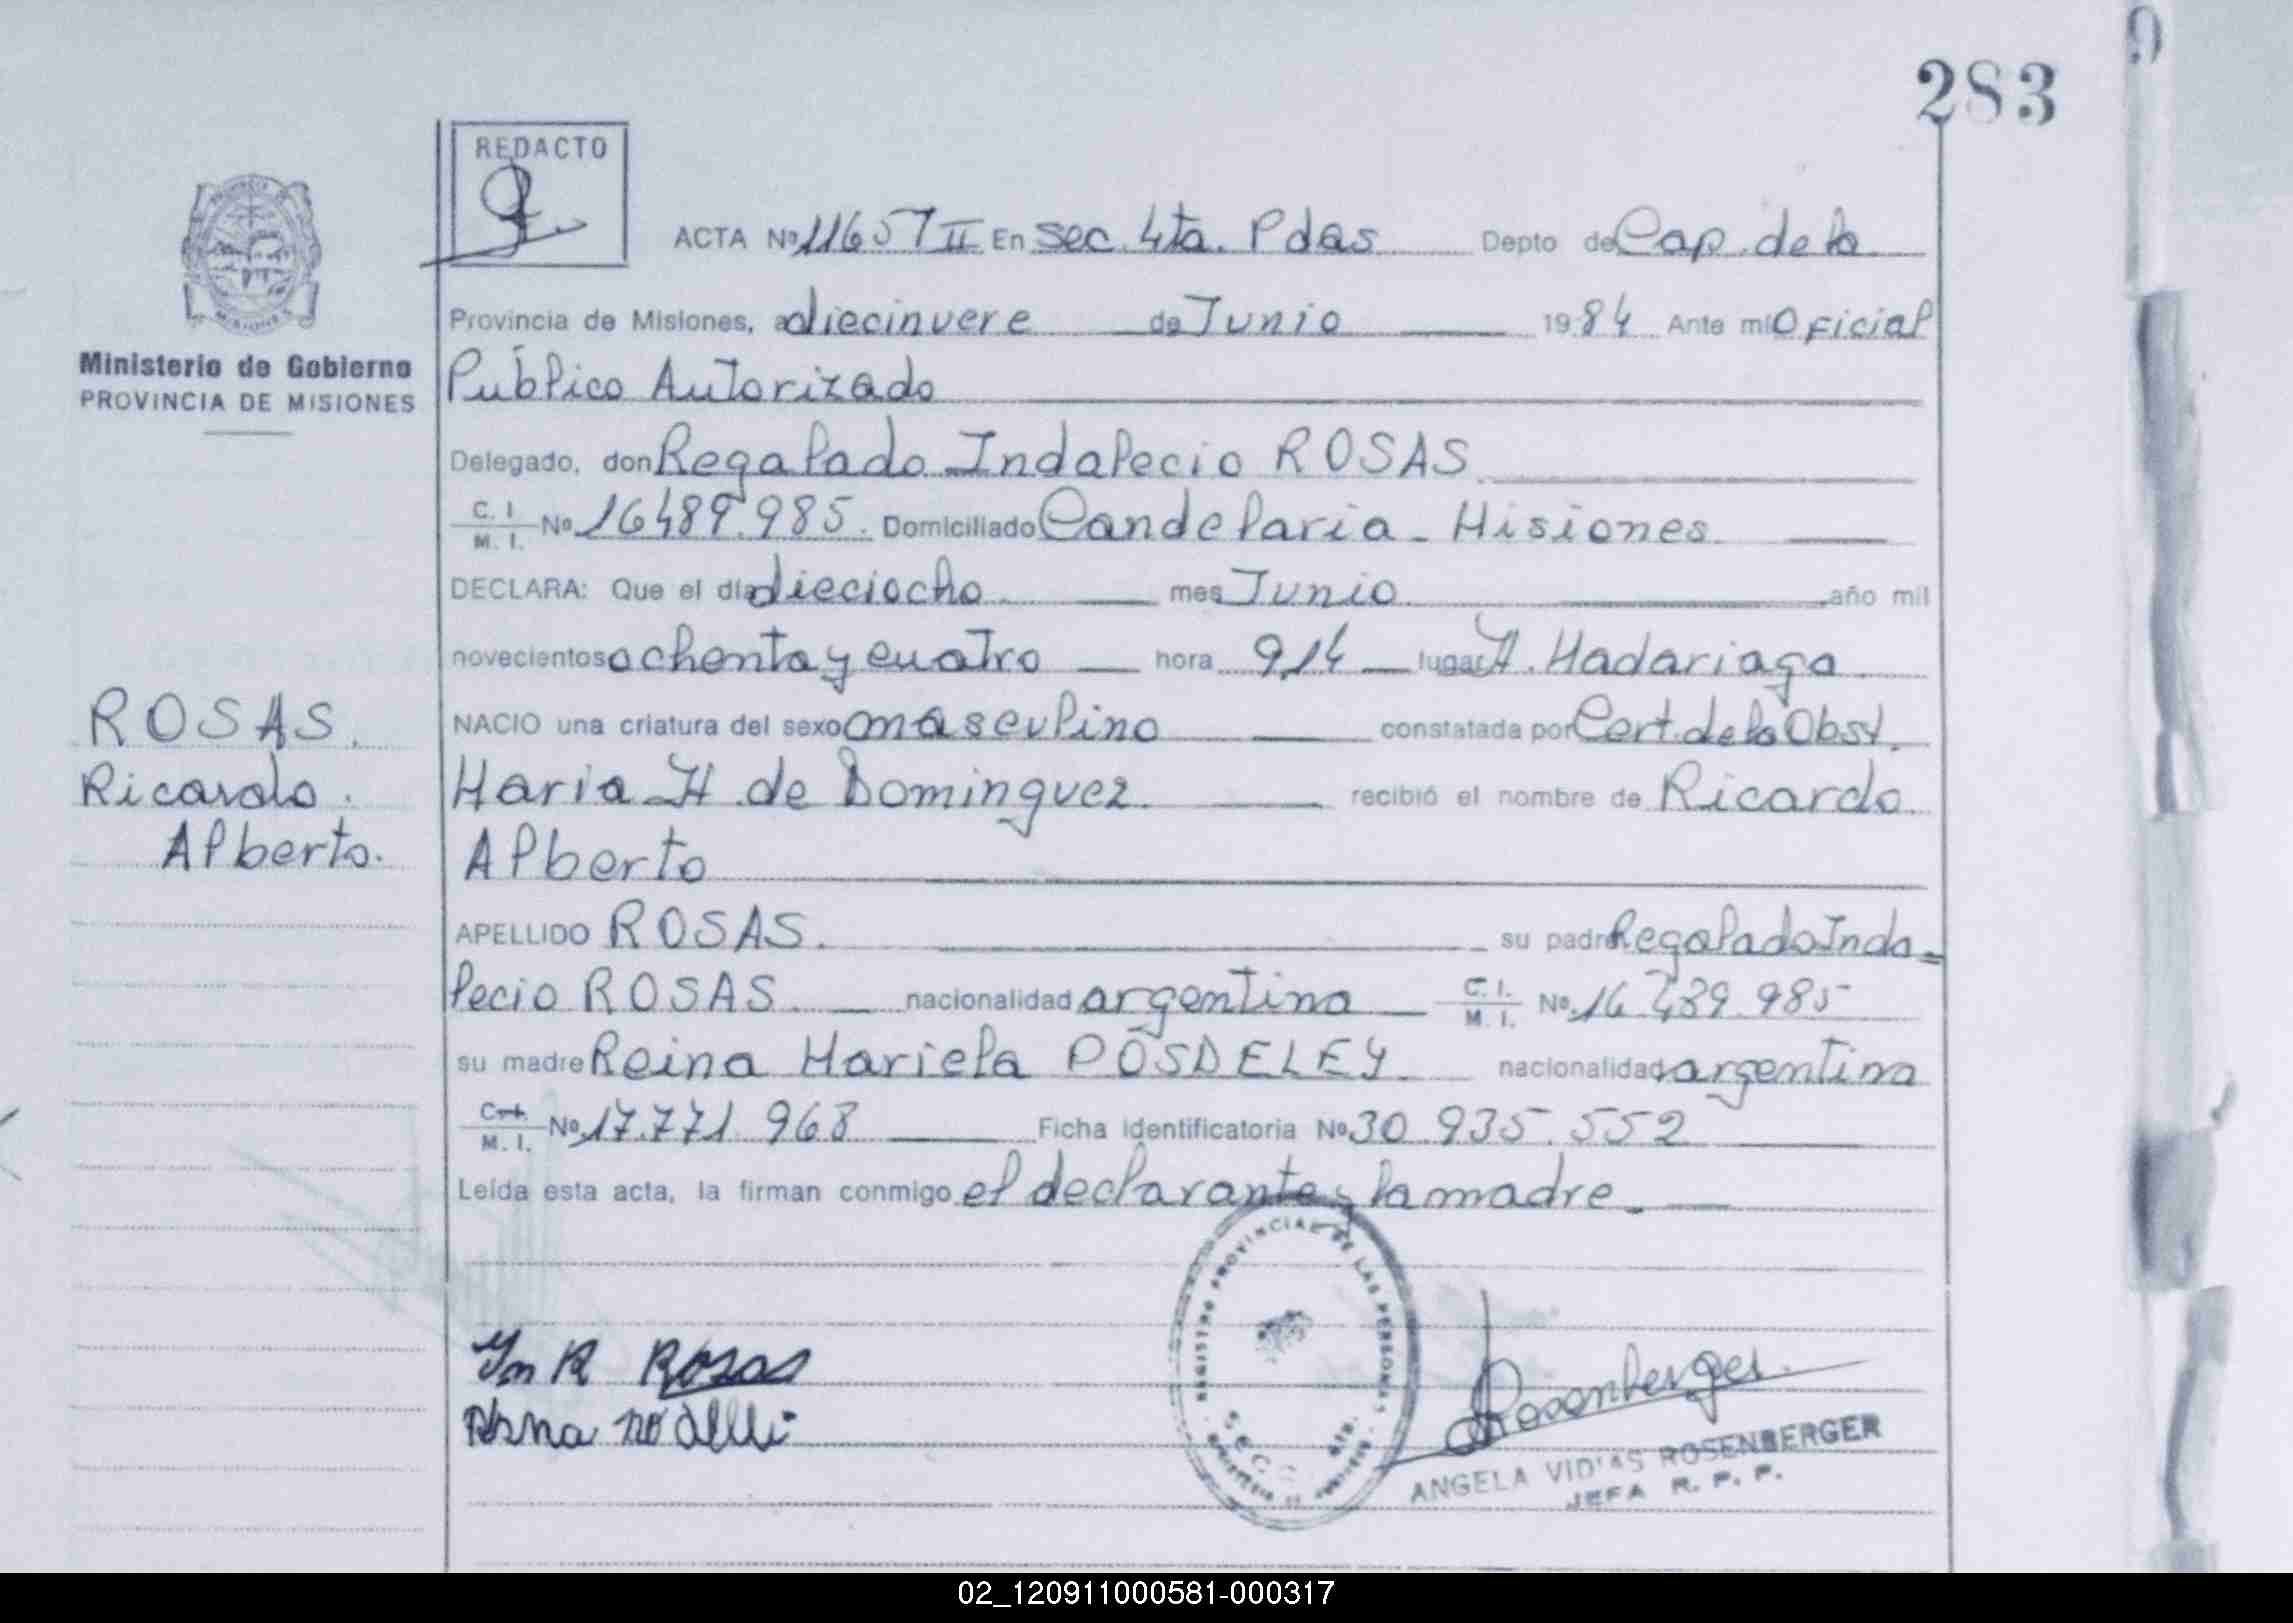 283
REDACTO
ACTA Nº 11657 II En sec. 4ta. Pdas Depto de Cap. de la
Provincia de Misiones, a diecinueve de Junio 1984 Ante mi Oficial
Ministerio de Gobierno
PROVINCIA DE MISIONES
Público Autorizado
Delegado, don Regalado Indalecio ROSAS
C. I. M. I. Nº 16489.985. Domiciliado Candelaria - Misiones
DECLARA: Que el día dieciocho mes Junio año mil
novecientos ochenta y cuatro hora 9,14 lugar H. Madariaga
NACIO una criatura del sexo masculino constatada por Cert. de la Obst.
Maria H. de Dominguez. recibió el nombre de Ricardo
Alberto
ROSAS.
Ricardo.
Alberto.
APELLIDO ROSAS. su padre Regalado Inda=
lecio ROSAS. nacionalidad argentina C. I. M. I. Nº 16.489.985
su madre Reina Mariela POSDELEY nacionalidad argentina
C. I. M. I. Nº 17.771.968 Ficha identificatoria Nº 30.935.552
Leída esta acta, la firman conmigo el declarante y la madre.
REGISTRO PROVINCIAL DE LAS PERSONAS
SECC. 4ta.
R Rosas
Rosenberger
ANGELA ROSENBERGER
JEFA R. P. P.
02_120911000581-000317